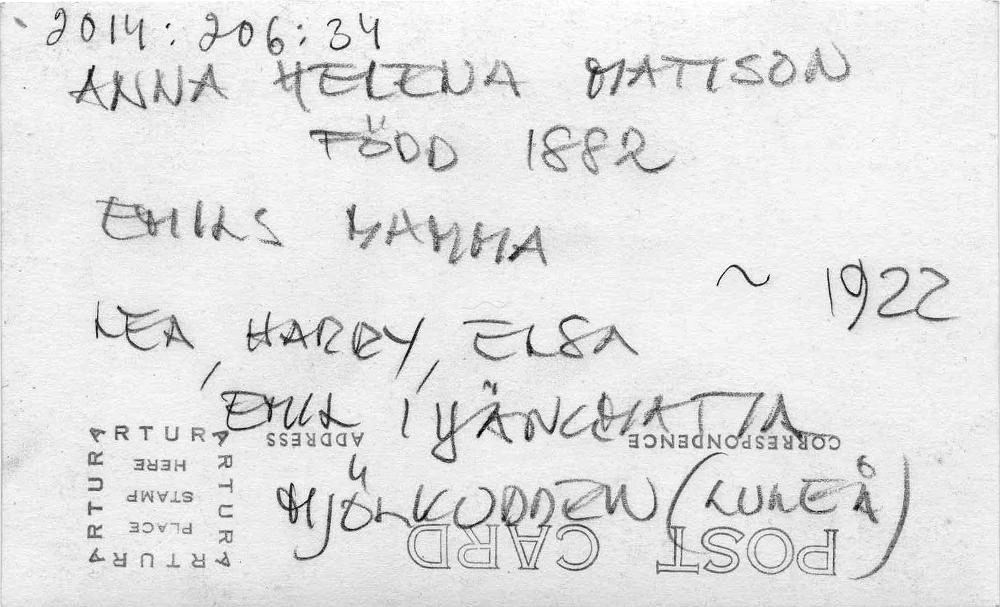 2014:206:34
ANNA HELENA MATTSON
FÖDD 1882
EMILS MAMMA
~ 1922
LEA, HARRY, ELSA
EMIL I
MJÖLKUDDEN (LULEÅ)
ARTURA
ARTURA
ARTURA
ARTURA
PLACE
STAMP
HERE
ADDRESS
CORRESPONDENCE
POST CARD